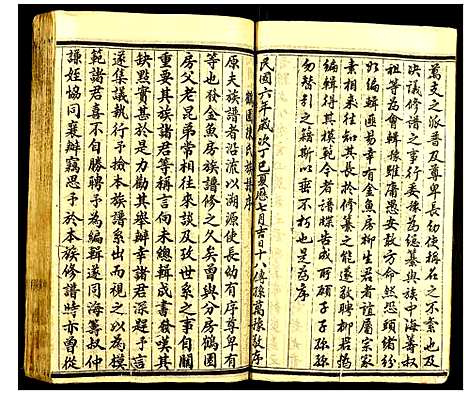 萬支之派普及尊卑長幼使稱名之不紊也及
決議修譜之事進行委豫為總纂與族中海籌叔
祖等為會輯豫雖庸愚安敢方命然思頭緒紛
如編輯匪易幸有金魚房柳生君者誼屬宗家
素相來往知其長於修纂之能遂敦聘柳君揚
限而標其模範今者譜牒告成可碩子子孫孫
勿替引之籍斯以垂不朽也是為序
民國六年歲次丁巳夏曆七月吉日十八傳孫萬豫敬序
鶴園陳氏族譜序
原夫族譜者沿流以溯源使長幼有序尊卑有
等也登金魚房族譜修之久矣曾與分房鶴園
房父老昆弟常相往來談及攻世系之事自關
重要其族諸君等稱言向未總輯成書發嘆其
缺點實甚於是力勸其舉辦幸諸君深韙予言
遂集議執行予檢本族譜系出而視之以為模
範諸君喜不自勝聘予為編輯遂同海籌叔仲
謙姪協同襄辦竊思予於本族修譜時亦曾從